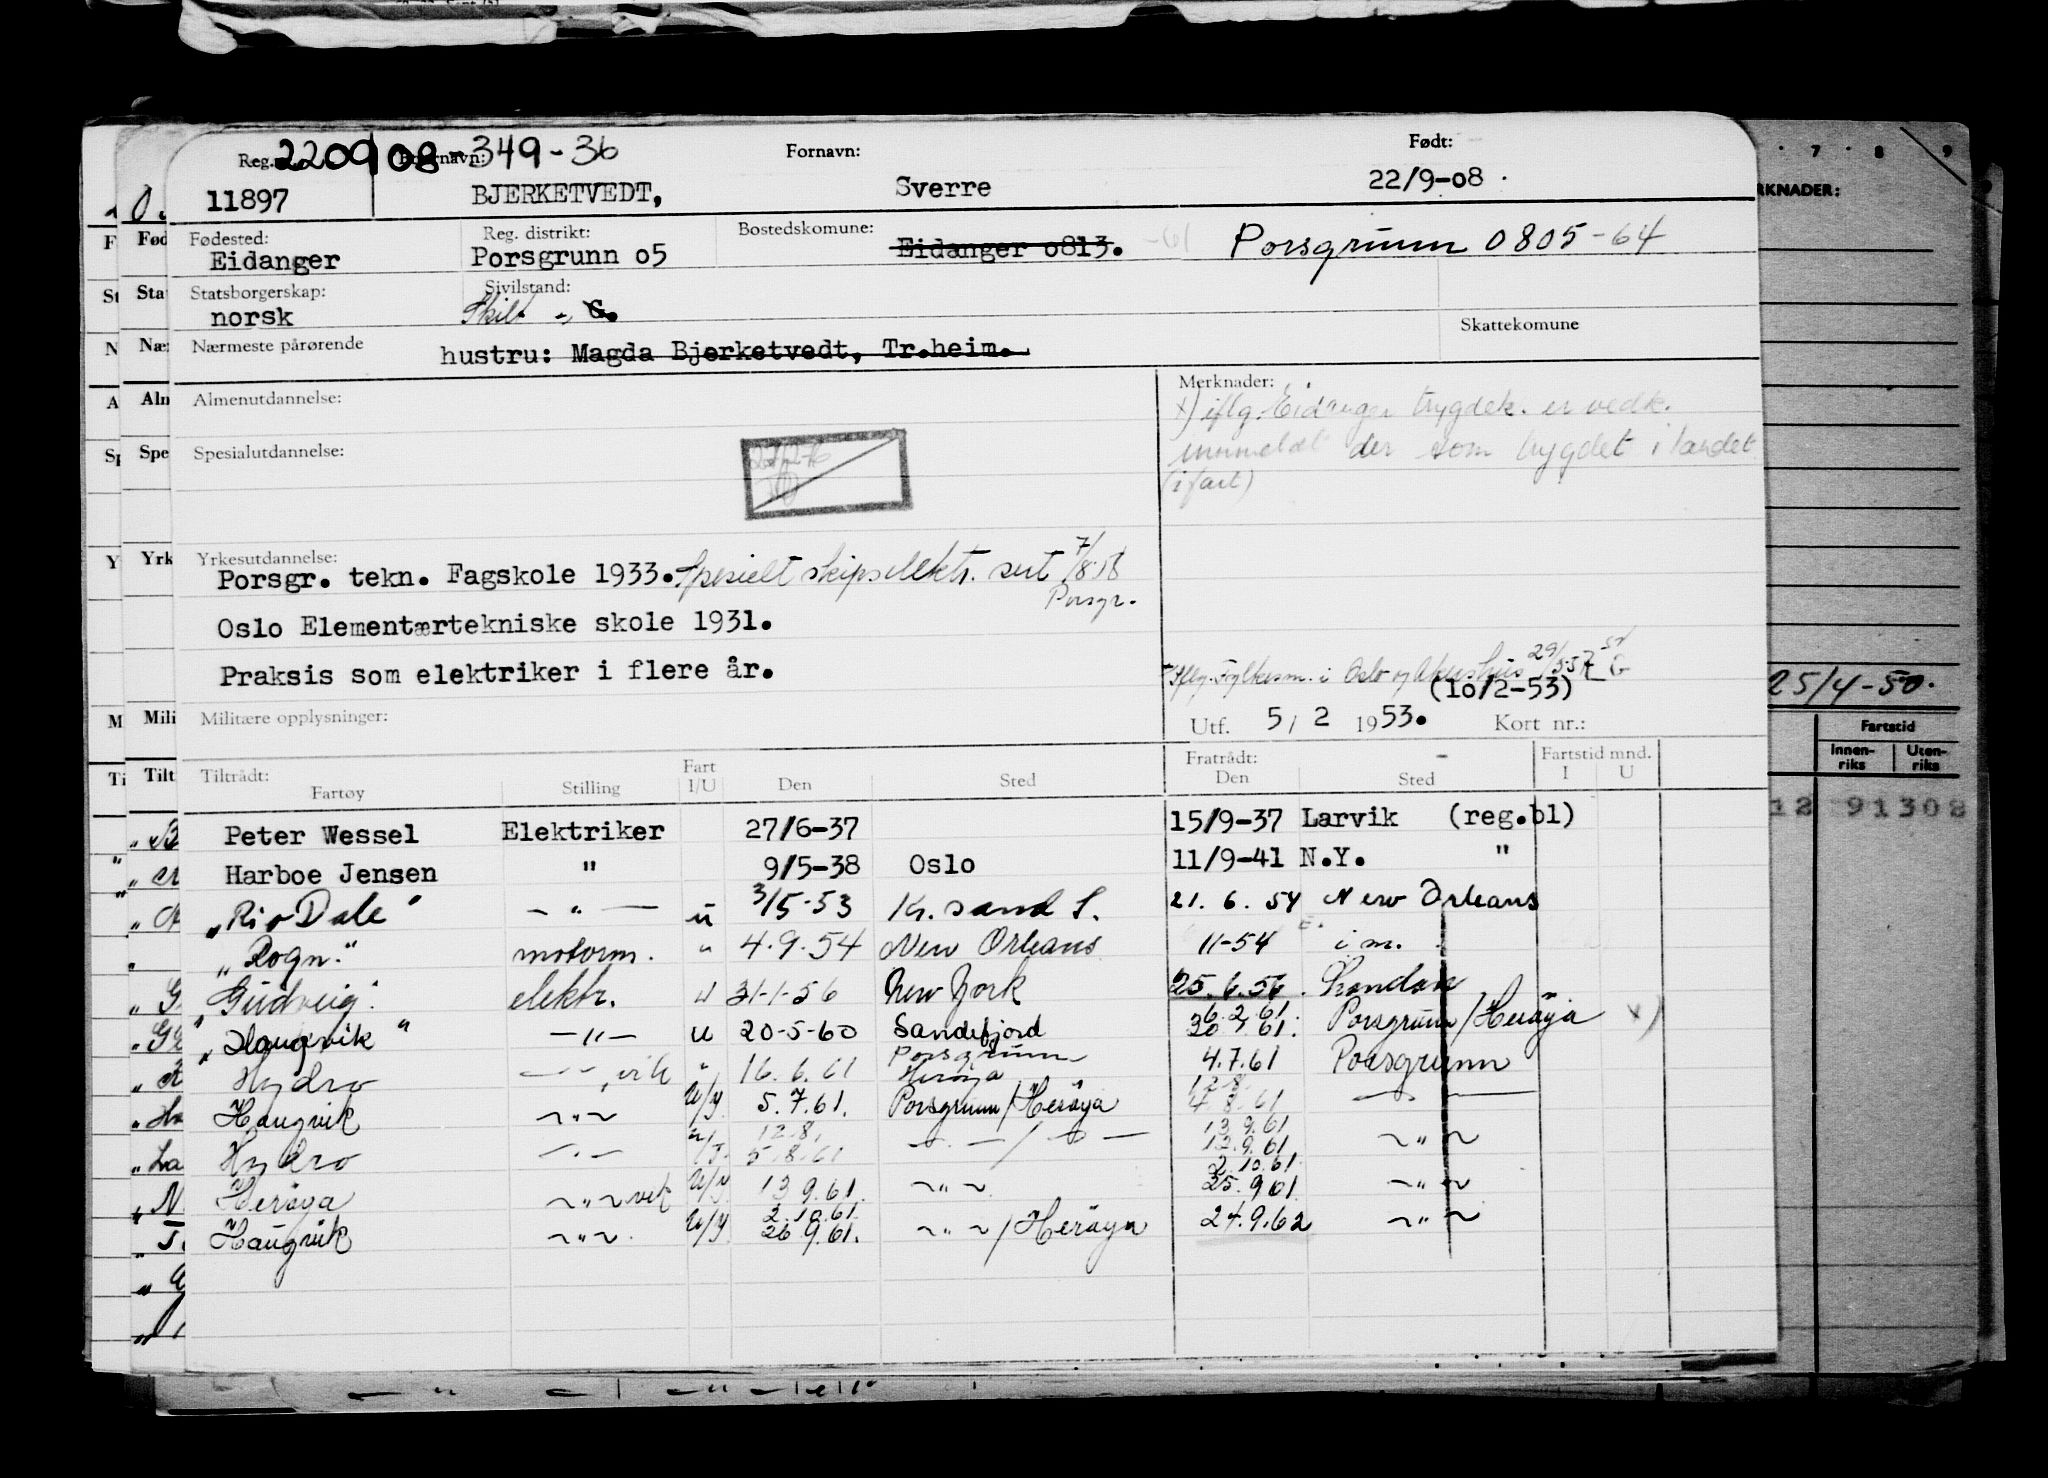 Reg. 220908-349-36 Fornavn: Født:
11897 BJERKETVEDT, Sverre 22/9-08
Fødested: Reg. distrikt: Bostedskomune:
Eidanger Porsgrunn 05 Eidanger 0813. -61 Porsgrunn 0805-64
Statsborgerskap: Sivilstand:
norsk Skilt - G.
Nærmeste pårørende Skattekomune
hustru: Magda Bjerketvedt, Tr.heim.
Almenutdannelse: Merknader:
x) iflg. Eidanger trygdek. er vedk.
innmeldt der som trygdet i landet
(i fart)
Spesialutdannelse:
Yrkesutdannelse:
Porsgr. tekn. Fagskole 1933. Spesielt skipselektr. sert 7/8.58
Porsgr.
Oslo Elementærtekniske skole 1931.
Praksis som elektriker i flere år.
Iflg. Fylkesm. i Oslo og Akershus 29/5-57
(10/2-53)
Militære opplysninger: Utf. 5/2 1953. Kort nr.:
25/4-50.
Tiltrådt: Fratrådt: Fartstid mnd.
Fartøy Stilling Fart I/U Den Sted Den Sted I U
Peter Wessel Elektriker 27/6-37 15/9-37 Larvik (reg.bl)
Harboe Jensen " 9/5-38 Oslo 11/9-41 N.Y. "
„Rio Dale" - " - u 3/5-53 Kr. sand S. 21. 6. 54 New Orleans
„Rogn." motorm. " 4.9.54 New Orleans 11-54 i m.
„Gudveig" elektr. u 31-1-56 New York 25.6.56 London
„Haugvik" -"- u 20-5-60 Sandefjord 6.2.61 30.1.61. Porsgrunn/Herøya x)
Hydro -"- vik " 16.6.61 Porsgrunn Herøya 4.7.61 Porsgrunn
Haugvik ~"~ U/I. 5.7.61. Porsgrunn/Herøya 12.8. 4.8.61 - " -
Hydro -"- U/I. 12.8. 5.8.61 - " - / - " - 13.9.61 12.9.61 ~"~
Herøya ~"~ vik U/I 13.9.61. ~"~ 2.10.61. 25.9.61. ~"~
Haugvik ~"~. U/I. 2.10.61. 26.9.61. ~"~ / Herøya 24.9.62 ~"~
7 8 9
RKNADER:
Fartstid
Innen-riks Uten-riks
12 91308